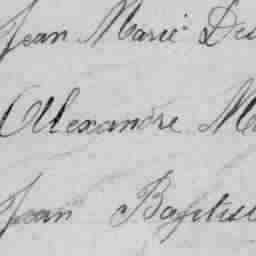 Jean Marie De
Alexandre M
Jean Baptise